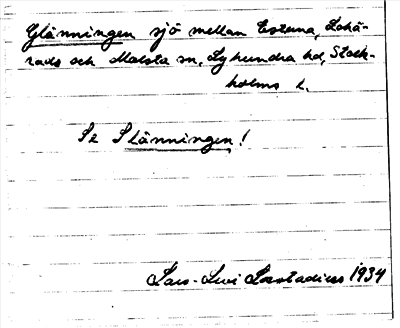 Glänningen sjö mellan Estuna, Lohä-
rads och Malsta sn, Lyhundra hd, Stock-
holms l.
Se Slänningen!
Lars-Levi Læstadius 1934